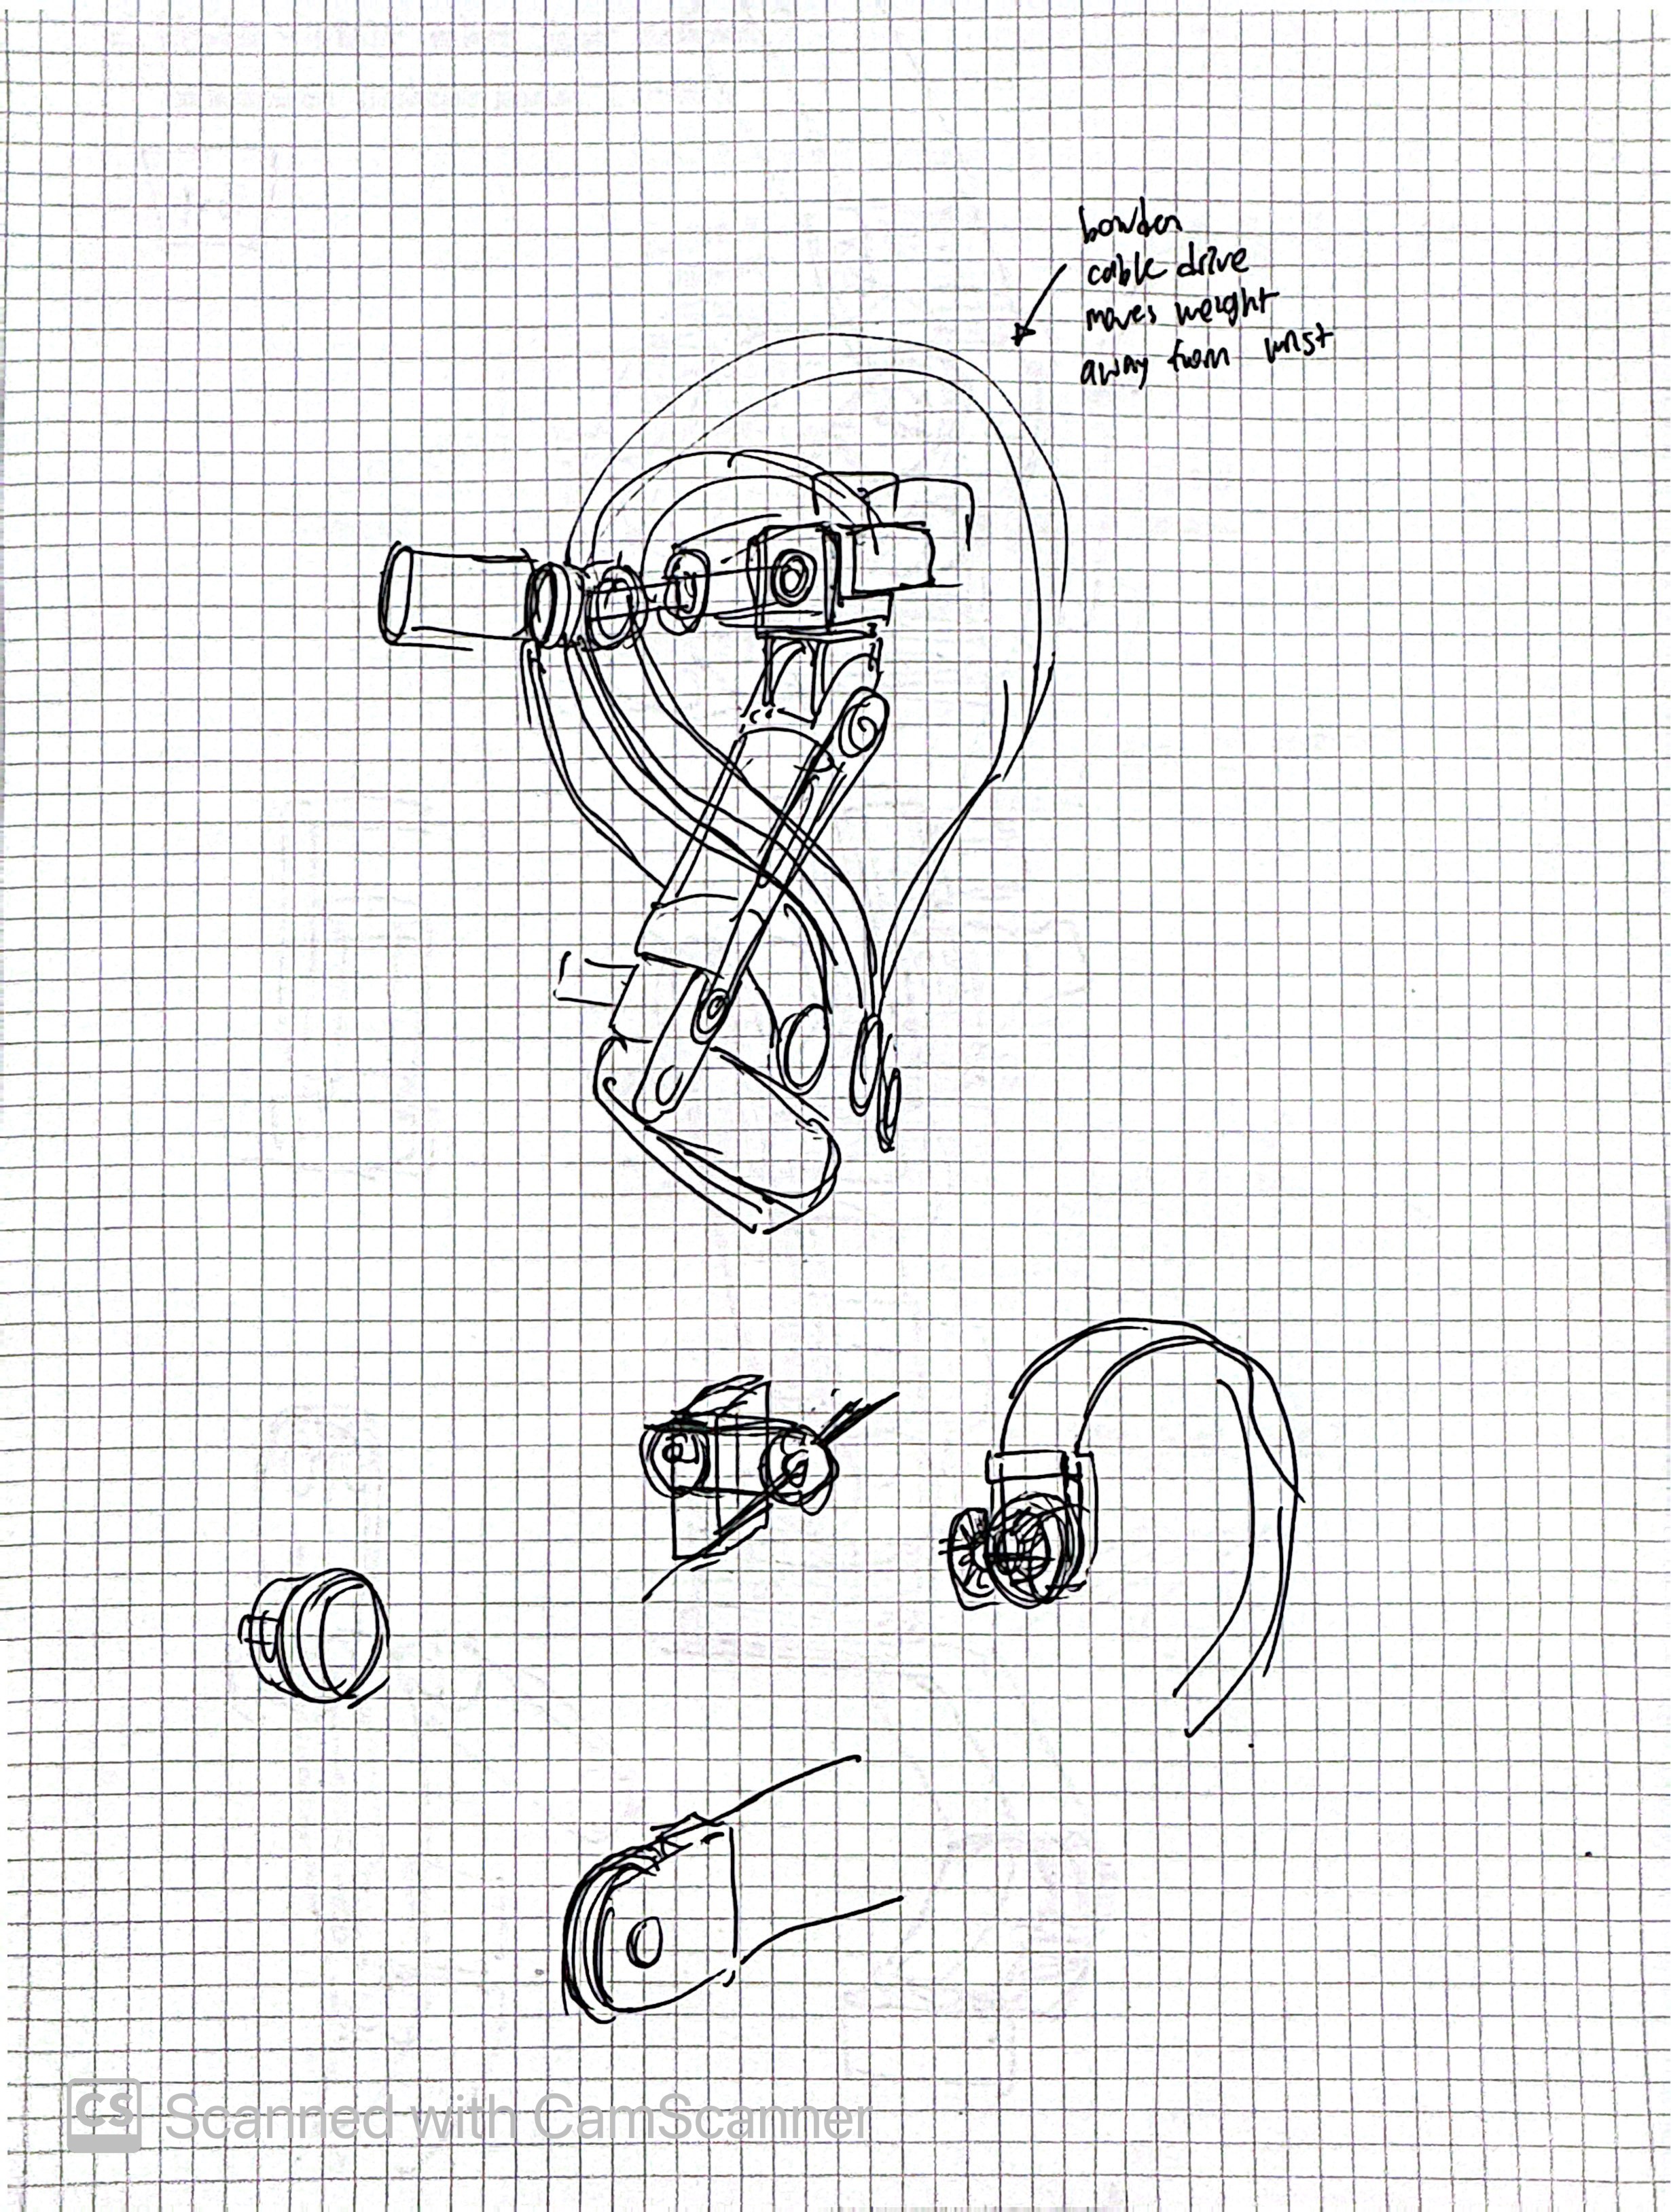 bowden
cable drive
moves weight
away from wrist
CS Scanned with CamScanner